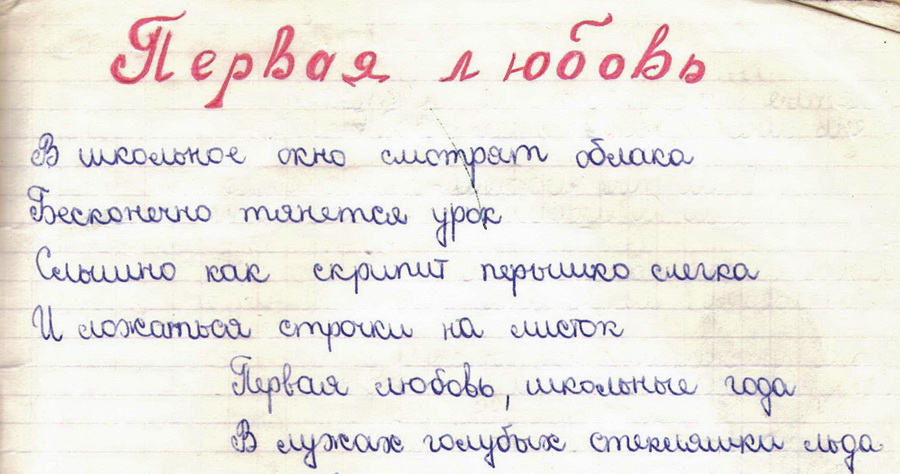 Первая любовь
В школьное окно смотрят облака
Бесконечно тянется урок
Слышно как скрипит перышко слегка
И ложаться строчки на листок
Первая любовь, школьные года
В лужах голубых стекляшки льда